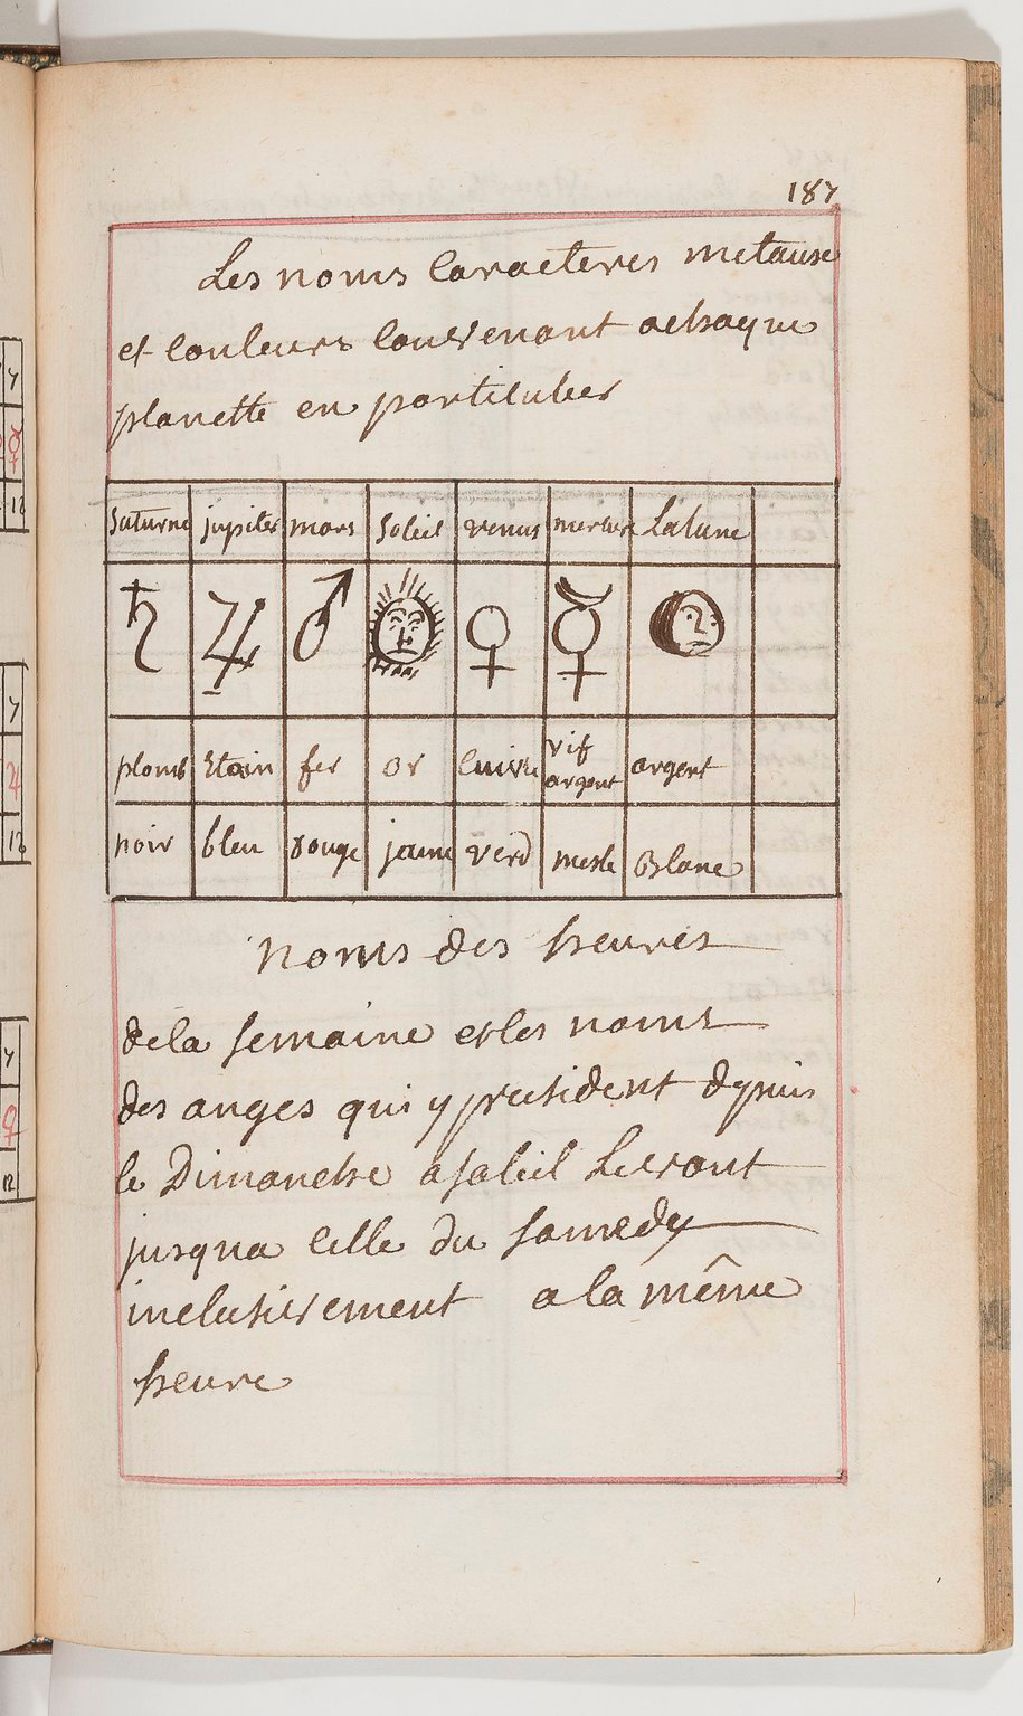 187
Les noms Caracteres metause
et Couleurs Convenant achaque
planette en particulier
Saturne jupiter mars Soleil venus mercure La lune
♄ ♃ ♂ ♀ ☿
plomb Etain fer or Cuivre vif argent argent
noir bleu rouge jaune verd mesle Blanc
noms des heures
de la semaine et les noms
des anges qui y president depuis
le Dimanche a soleil Levant
jusqua Celle du samedy
inclusivement a la même
heure
y
☿
12
y
♃
12
y
♀
12